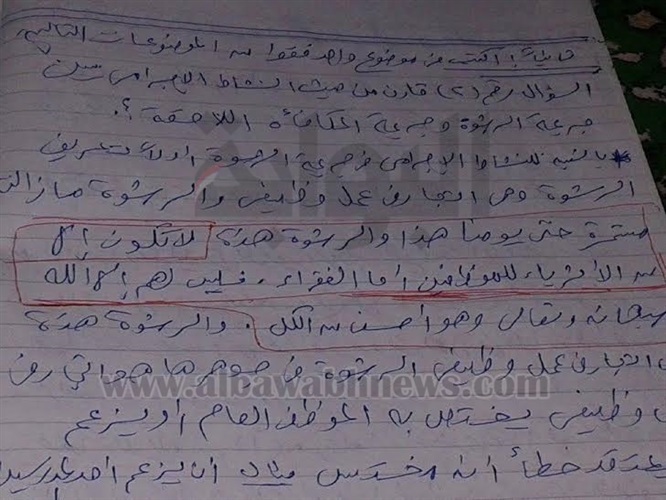 ثانياً: اكتب في موضوع واحد فقط من الموضوعات التالية
السؤال رقم (٢) قارن من حيث النشاط الإجرامي بين
جريمة الرشوة وجريمة المكافأة اللاحقة؟.
بالنسبة للنشاط الإجرامي في جريمة الرشوة أولاً تعريف
الرشوة وهي اتجار في عمل وظيفي والرشوة مازالت
مستمرة حتى يومنا هذا والرشوة هذة لا تكون إلا
من الأغنياء للموظفين أما الفقراء، فليس لهم إلا الله
سبحانه وتعالى وهو أحسن من الكل. والرشوة هذة
اتجار في عمل وظيفي الرشوة في جوهرها هو اتجار في
وظيفي يختص به الموظف العام أو يزعم
يعتقد خطأ أنه مختص مثال أن يزعم أحد
www.albawabhnews.com
البوابة